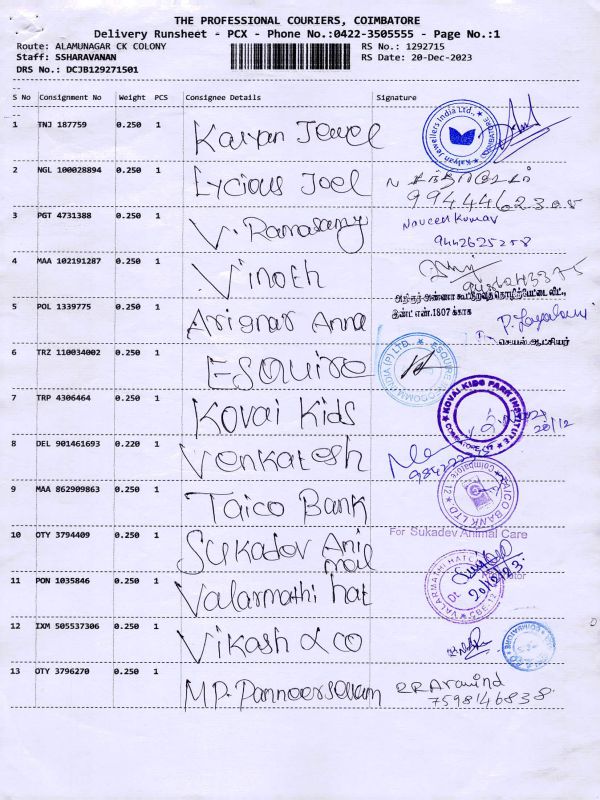 THE PROFESSIONAL COURIERS, COIMBATORE
Delivery Runsheet - PCX - Phone No.:0422-3505555 - Page No.:1
Route: ALAMUNAGAR CK COLONY RS No.: 1292715
Staff: SSHARAVANAN RS Date: 20-Dec-2023
DRS No.: DCJB129271501
S No Consignment No Weight PCS Consignee Details Signature
1 TNJ 187759 0.250 1 Kalyan Jewel Kalyan Jewellers India Ltd.,
2 NGL 100028894 0.250 1 Lycious Joel
3 PGT 4731388 0.250 1 V. Ramasamy Naveen Kumar
9442625258
4 MAA 102191287 0.250 1 Vinoth
அறிஞர் அண்ணா கூட்டுறவுத் தொழிற்பேட்டை லிட்.,
5 POL 1339775 0.250 1 Arignar Anna இண்ட் எண்.1807 க்காக
செயல் ஆட்சியர்
6 TRZ 110034002 0.250 1 ESquire
7 TRP 4306464 0.250 1 Kovai Kids KOVAI KIDS PARK INSTITUTE
20/12
8 DEL 901461693 0.220 1 Venkatesh
9 MAA 862909863 0.250 1 Taico Bank TAICO BANK LTD Coimbatore-12
For Sukadev Animal Care
10 OTY 3794409 0.250 1 Sukadev Ani
mal
20/12/23
11 PON 1035846 0.250 1 Valarmathi hat VALARMATHI HATC
12 IXM 505537306 0.250 1 Vikash & co
13 OTY 3796270 0.250 1 M.P. Panneerselvam R R Aravind
7598146838